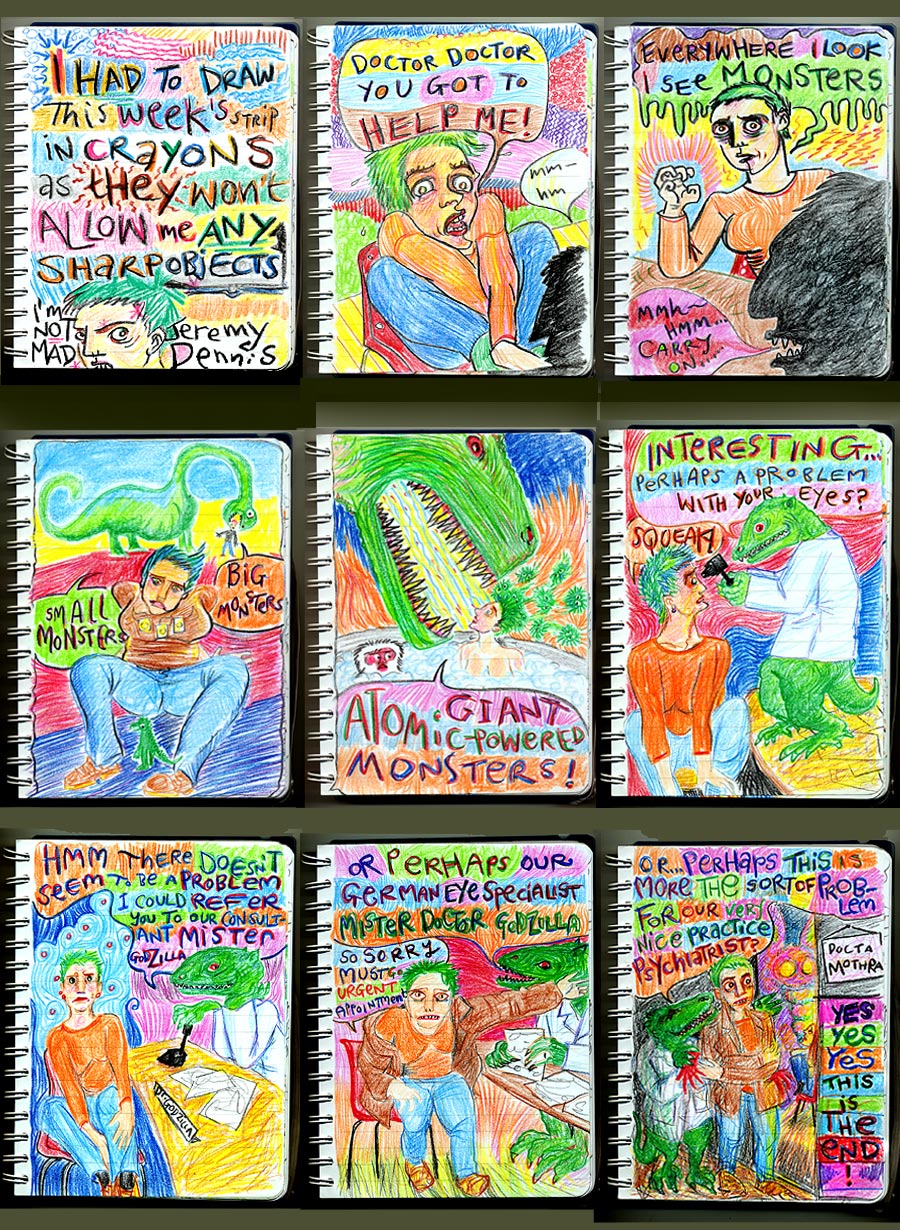 I HAD TO DRAW
THIS WEEK'S STRIP
IN CRAYONS
as they WON'T
ALLOW me ANY
SHARP OBJECTS
I'm
NOT
MAD
Jeremy
Dennis
DOCTOR DOCTOR
YOU GOT TO
HELP ME!
mm
hm
EVERYWHERE I LOOK
I SEE MONSTERS
MMH~
HMM...
CARRY
ON...
SMALL
MONSTERS
BIG
MONSTERS
GIANT
ATOMIC-POWERED
MONSTERS!
INTERESTING...
PERHAPS A PROBLEM
WITH YOUR EYES?
SQUEAK
HMM THERE DOESN'T
SEEM TO BE A PROBLEM
I COULD REFER
YOU TO OUR CONSULT-
ANT MISTER
GODZILLA
DR GODZILLA
OR PERHAPS OUR
GERMAN EYE SPECIALIST
MISTER DOCTOR GODZILLA
SO SORRY
MUST GO
URGENT
APPOINTMENT
OR... PERHAPS THIS IS
MORE THE SORT OF PROB-
LEM
FOR OUR VERY
NICE PRACTICE
PSYCHIATRIST?
DOCTA
MOTHRA
YES
YES
YES
THIS
IS
THE
END
!